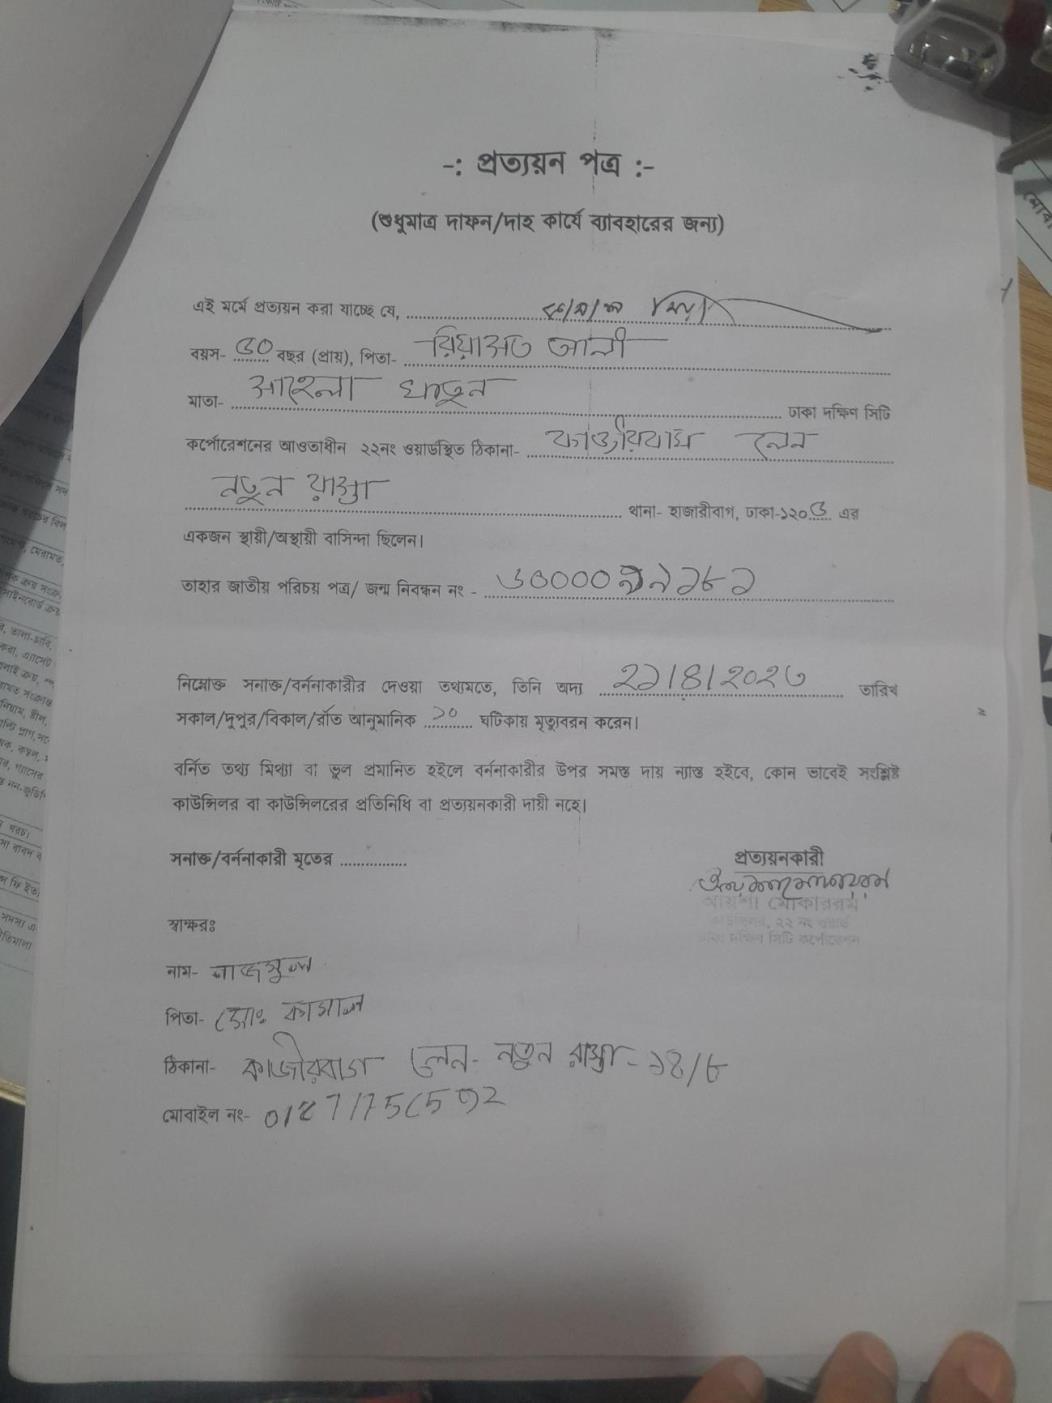 -: প্রত্যয়ন পত্র :-
(শুধুমাত্র দাফন/দাহ কার্যে ব্যাবহারের জন্য)
এই মর্মে প্রত্যয়ন করা যাচ্ছে যে,
বয়স- ৫০ বছর (প্রায়), পিতা- রিয়াজত আলী
মাতা- খাতুন ঢাকা দক্ষিণ সিটি
কর্পোরেশনের আওতাধীন ২২নং ওয়ার্ডস্থিত ঠিকানা- কাজীরবাগ লেন
নতুন রাস্তা থানা- হাজারীবাগ, ঢাকা-১২০৫ এর
একজন স্থায়ী/অস্থায়ী বাসিন্দা ছিলেন।
তাহার জাতীয় পরিচয় পত্র/ জন্ম নিবন্ধন নং -
নিম্নোক্ত সনাক্ত/বর্ননাকারীর দেওয়া তথ্যমতে, তিনি অদ্য ২১/৪/২০২৩ তারিখ
সকাল/দুপুর/বিকাল/রাত আনুমানিক ১০ ঘটিকায় মৃত্যুবরন করেন।
বর্নিত তথ্য মিথ্যা বা ভুল প্রমানিত হইলে বর্ননাকারীর উপর সমস্ত দায় ন্যাস্ত হইবে, কোন ভাবেই সংশ্লিষ্ট
কাউন্সিলর বা কাউন্সিলরের প্রতিনিধি বা প্রত্যয়নকারী দায়ী নহে।
সনাক্ত/বর্ননাকারী মৃতের ...............
প্রত্যয়নকারী
আয়শা মোকাররম
কাউন্সিলর, ২২ নং ওয়ার্ড
ঢাকা দক্ষিণ সিটি কর্পোরেশন
স্বাক্ষরঃ
নাম- নাজমুল
পিতা- মোঃ কামাল
ঠিকানা- কাজীরবাগ লেন- নতুন রাস্তা- ১৪/৮
মোবাইল নং-